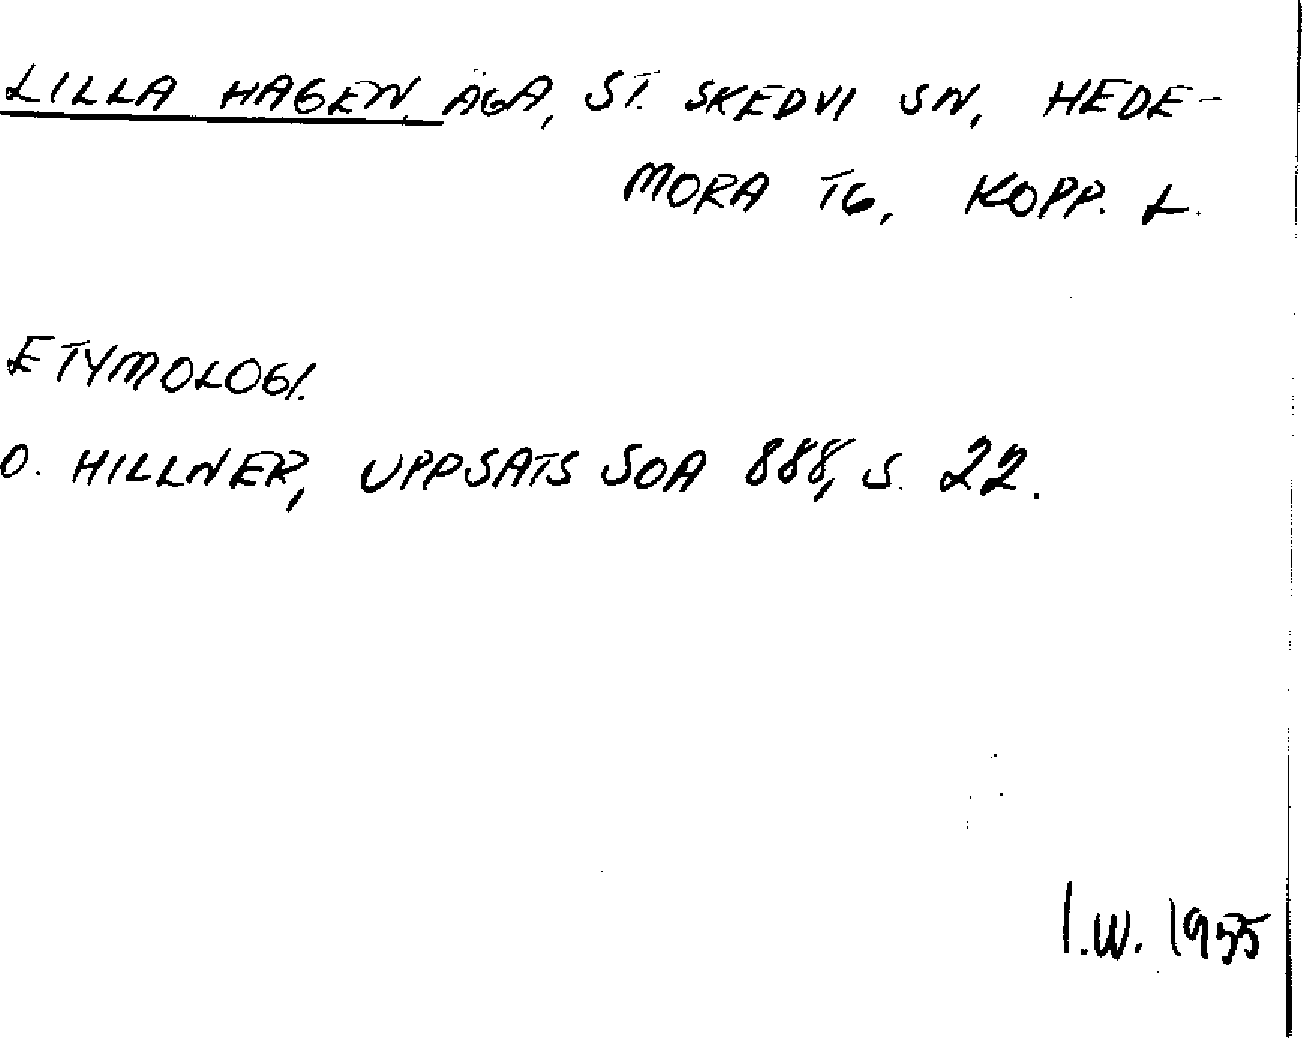 LILLA HAGEN, ÄGA, ST. SKEDVI SN, HEDE-
MORA TG, KOPP. L.
ETYMOLOGI.
O. HILLNER, UPPSATS SOA 888, S. 22.
I.W. 1955